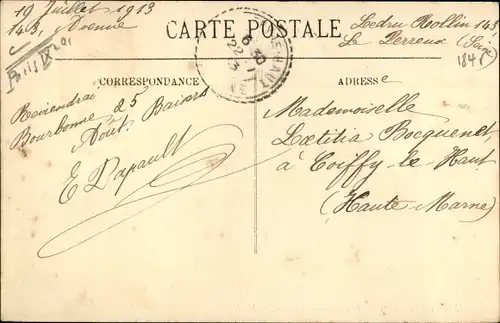 19 Juillet 1913
143, Avenue
CARTE POSTALE
Ledru Rollin 143
Le Perreux (Seine)
CORRESPONDANCE
Reviendrai
Bourbonne 25
Août. Baisers
E Dapault
ADRESSE
Mademoiselle
Lœtitia Bocquenet,
à Coiffy-le-Haut
(Haute-Marne)